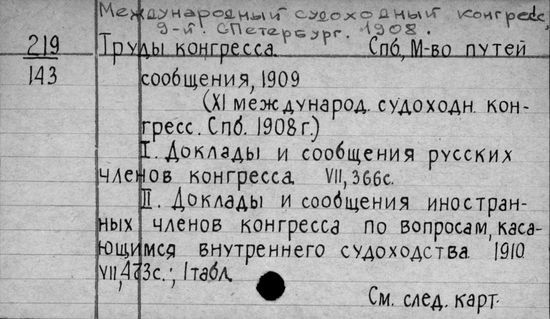 Международный судоходный конгресс,
9-й. СПетербург. 1908.
219
143
Труды конгресса. Спб, М-во путей
сообщения, 1909
(XI международ. судоходн. кон-
гресс. Спб. 1908 г.)
I. Доклады и сообщения русских
членов конгресса VII, 366с.
II. Доклады и сообщения иностран-
ных членов конгресса по вопросам, каса-
ющимся внутреннего судоходства 1910
VII, 473с.; 1 табл.
См. след. карт.